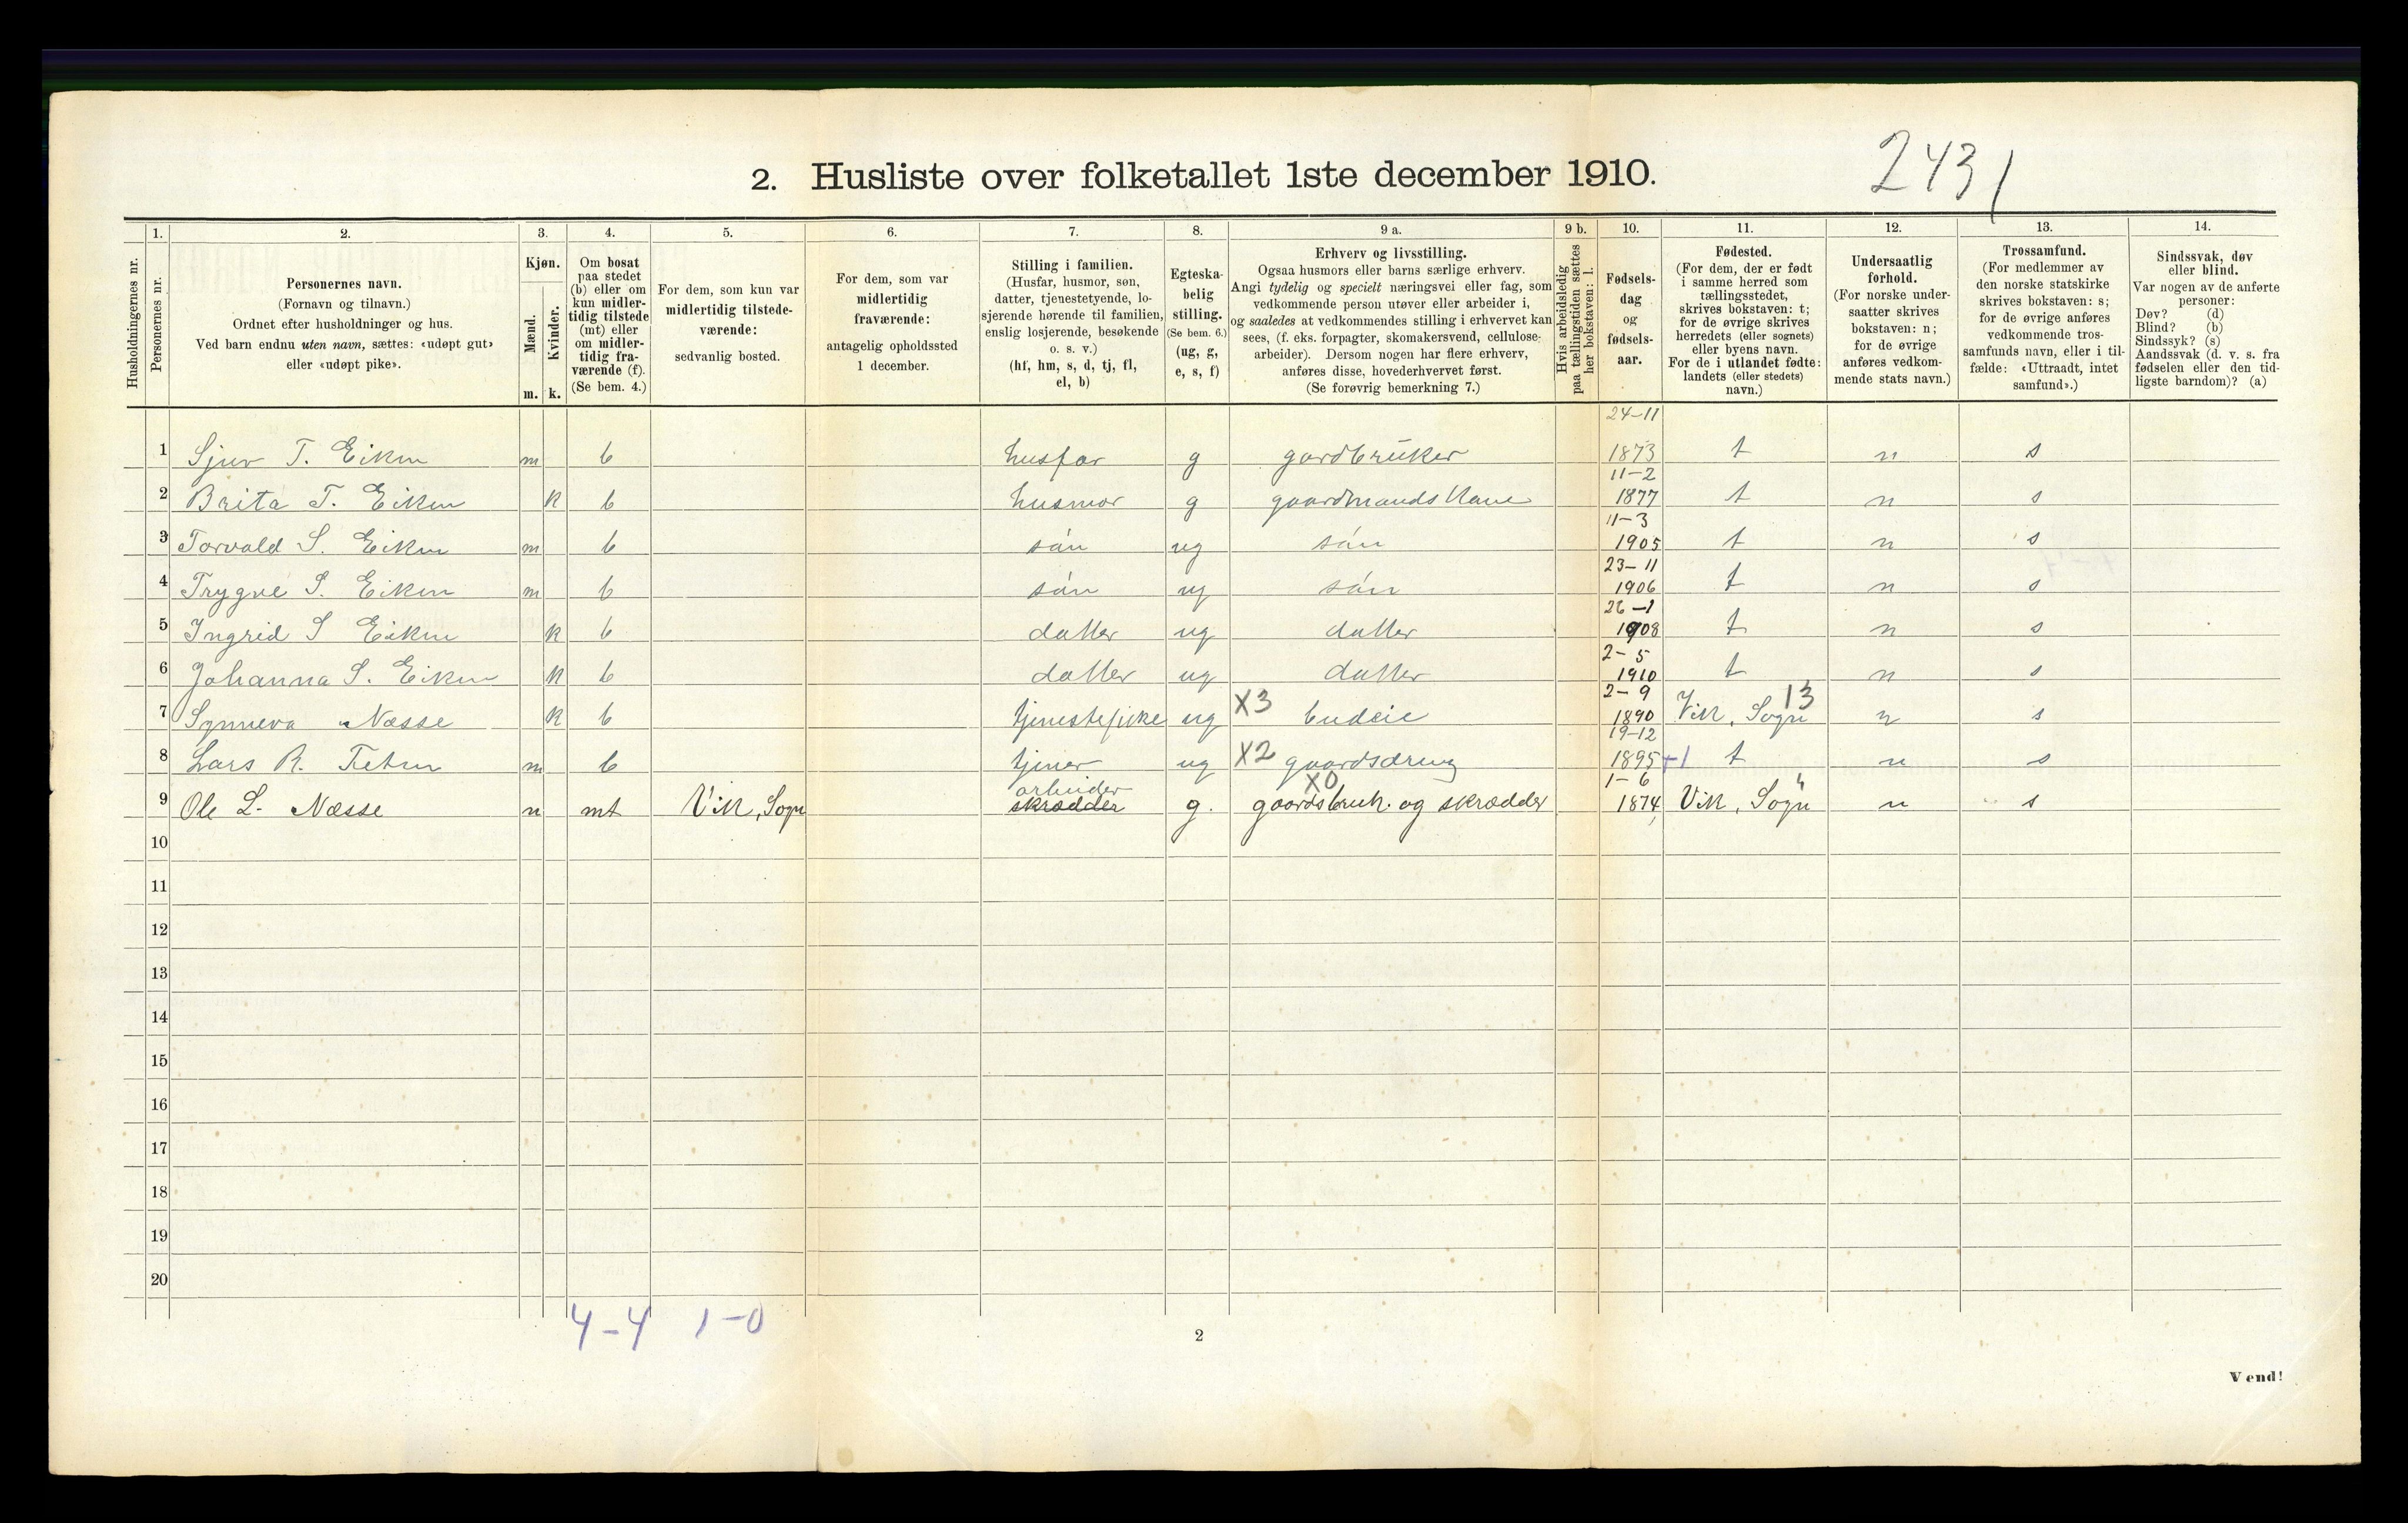 2. Husliste over folketallet 1ste december 1910.
2431
Husholdningernes nr.
1.
Personernes nr.
2.
Personernes navn.
(Fornavn og tilnavn.)
Ordnet efter husholdninger og hus.
Ved barn endnu uten navn, sættes: «udøpt gut»
eller «udøpt pike».
3.
Kjøn.
Mænd.
Kvinder.
m. k.
4.
Om bosat
paa stedet
(b) eller om
kun midler-
tidig tilstede
(mt) eller
om midler-
tidig fra-
værende (f).
(Se bem. 4.)
5.
For dem, som kun var
midlertidig tilstede-
værende:
sedvanlig bosted.
6.
For dem, som var
midlertidig
fraværende:
antagelig opholdssted
1 december.
7.
Stilling i familien.
(Husfar, husmor, søn,
datter, tjenestetyende, lo-
sjerende hørende til familien,
enslig losjerende, besøkende
o. s. v.)
(hf, hm, s, d, tj, fl,
el, b)
8.
Egteska-
belig
stilling.
(Se bem. 6.)
(ug, g,
e, s, f)
9 a.
Erhverv og livsstilling.
Ogsaa husmors eller barns særlige erhverv.
Angi tydelig og specielt næringsvei eller fag, som
vedkommende person utøver eller arbeider i,
og saaledes at vedkommendes stilling i erhvervet kan
sees, (f. eks. forpagter, skomakersvend, cellulose-
arbeider). Dersom nogen har flere erhverv,
anføres disse, hovederhvervet først.
(Se forøvrig bemerkning 7.)
9 b.
Hvis arbeidsledig
paa tællingstiden sættes
her bokstaven: l.
10.
Fødsels-
dag
og
fødsels-
aar.
11.
Fødested.
(For dem, der er født
i samme herred som
tællingsstedet,
skrives bokstaven: t;
for de øvrige skrives
herredets (eller sognets)
eller byens navn.
For de i utlandet fødte:
landets (eller stedets)
navn.)
12.
Undersaatlig
forhold.
(For norske under-
saatter skrives
bokstaven: n;
for de øvrige
anføres vedkom-
mende stats navn.)
13.
Trossamfund.
(For medlemmer av
den norske statskirke
skrives bokstaven: s;
for de øvrige anføres
vedkommende tros-
samfunds navn, eller i til-
fælde: «Uttraadt, intet
samfund».)
14.
Sindssvak, døv
eller blind.
Var nogen av de anførte
personer:
Døv? (d)
Blind? (b)
Sindssyk? (s)
Aandssvak (d. v. s. fra
fødselen eller den tid-
ligste barndom)? (a)
24-11
1 Sjur T. Eikm m b husfar g gardbrüker 1873 t n s
11-2
2 Brita T. Eikm k b husmor g gaardmands kane 1877 t n s
11-3
3 Torvald S. Eikm m b sán ug sán 1905 t n s
23-11
4 Trygve S. Eikm m b sán ug sán 1906 t n s
26-1
5 Ingrid S Eikm k b datter ug datter 1908 t n s
2-5
6 Johanna S. Eikm k b datter ug datter 1910 t n s
2-9 13
7 Synneva Næsse k b tjenestepike ug X3 budeie 1890 Vik, Sogn n s
19-12
8 Lars R. m b tjener ug X2 gaardsdreng 1895 +1 t n s
arbeider X0 1-6 4
9 Ole L. Næsse m mt Vik, Sogn skrædder g. gaardsbruk. og skrædder 1874 Vik, Sogn n s
10
11
12
13
14
15
16
17
18
19
20
4-4 1-0
2
Vend!